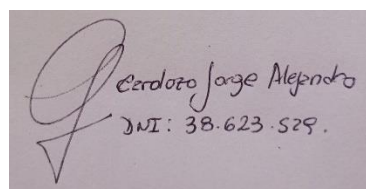 Cardozo Jorge Alejandro
DNI: 38.623.529.